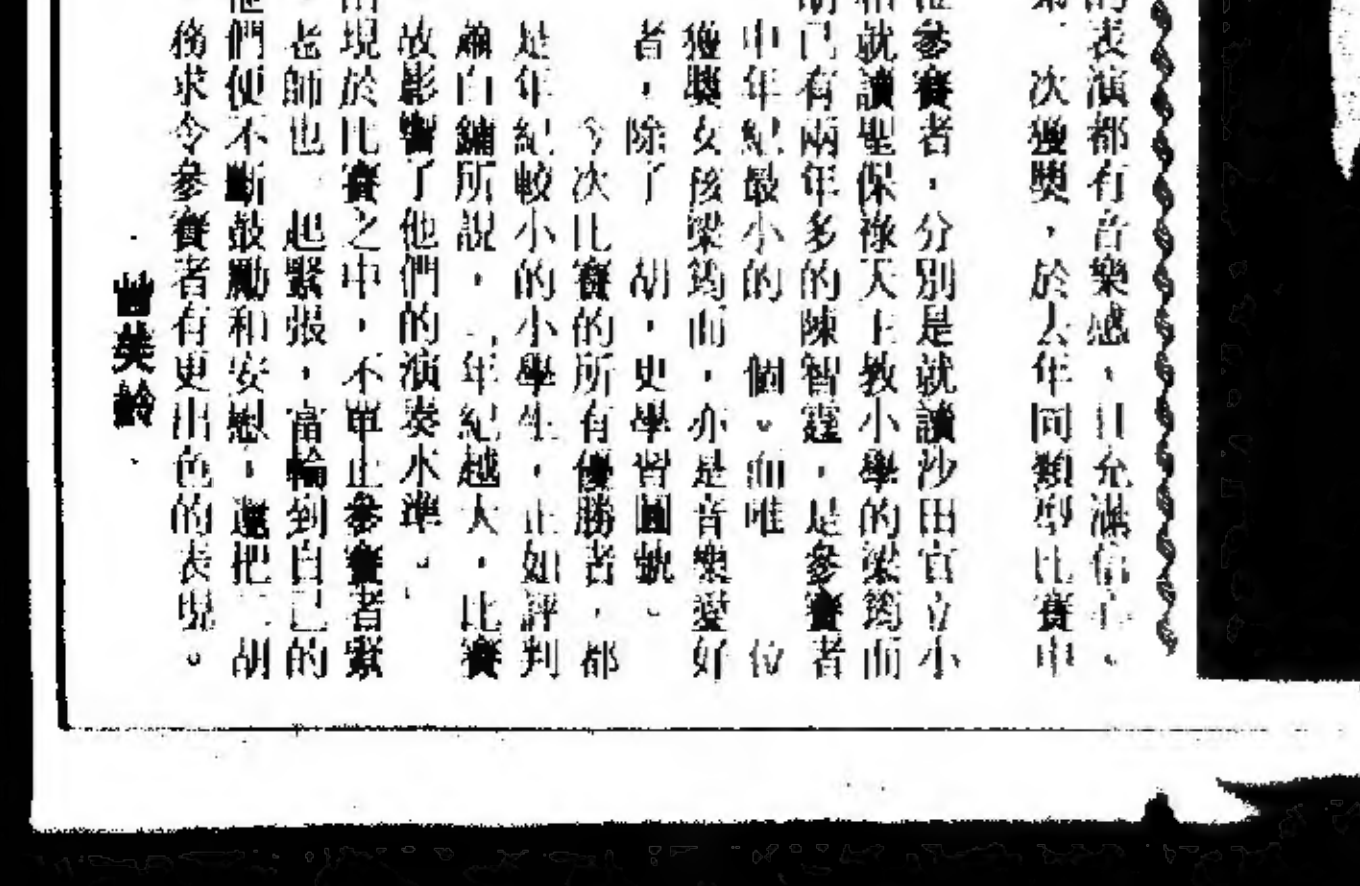 的表演都有音樂感，且充滿信心。
次獲獎，於去年同類型比賽中
參賽者，分別是就讀沙田官立小
和就讀聖保祿天主教小學的梁筠而
胡已有兩年多的陳智霆，是參賽者
中年紀最小的一個。而唯一一位
獲獎女孩梁筠而，亦是音樂愛好
者，除了二胡，更學習圓號。
今次比賽的所有優勝者，都
是年紀較小的小學生，正如評判
蕭白鏞所說，「年紀越大，比賽
故影響了他們的演奏水準。」
現於比賽之中，不單止參賽者緊
老師也一起緊張，當輪到自己的
他們便不斷鼓勵和安慰，還把二胡
務求令參賽者有更出色的表現。
·曾美齡·